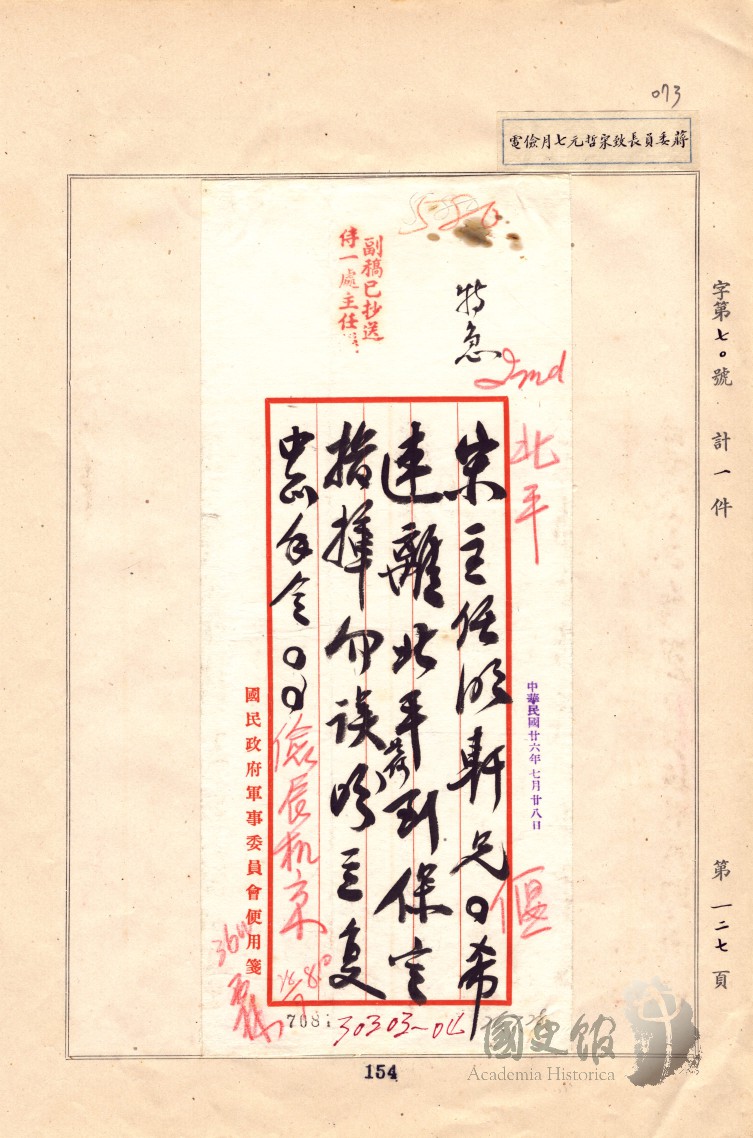 073
蔣委員長致宋哲元七月儉電
字第七〇號 計一件 第一二七頁
副稿已抄送
侍一處主任
特急
北平
中華民國廿六年七月廿八日
宋主任明軒兄。希
速離北平到保定
指揮勿誤盼立復
中正手令。。儉辰机京
國民政府軍事委員會便用箋
7081
30303-04
154
國史館
Academia Historica